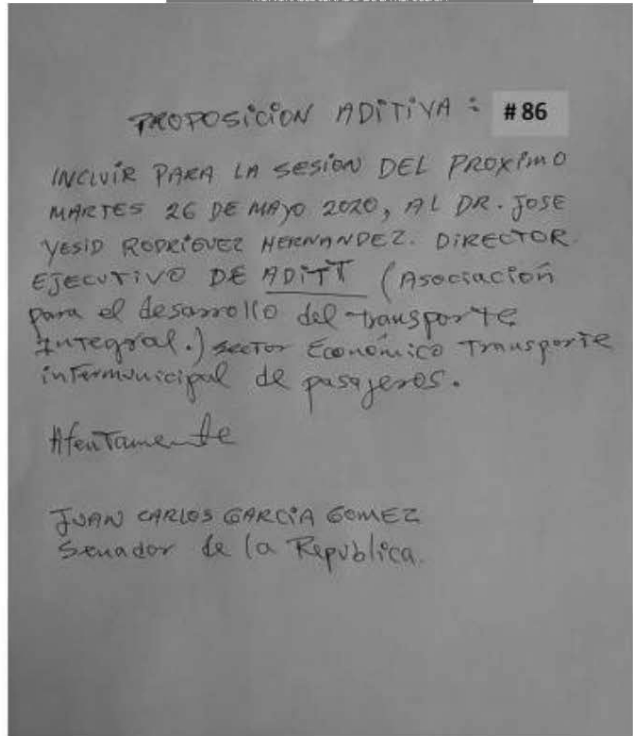 PROPOSICION ADITIVA : #86
INCLUIR PARA LA SESION DEL PROXIMO
MARTES 26 DE MAYO 2020, AL DR. JOSE
YESID RODRIGUEZ HERNANDEZ. DIRECTOR
EJECUTIVO DE ADITT (Asociación
para el desarrollo del transporte
Integral.) sector Económico Transporte
intermunicipal de pasajeros.
Atentamente
JUAN CARLOS GARCIA GOMEZ
Senador de la Republica.